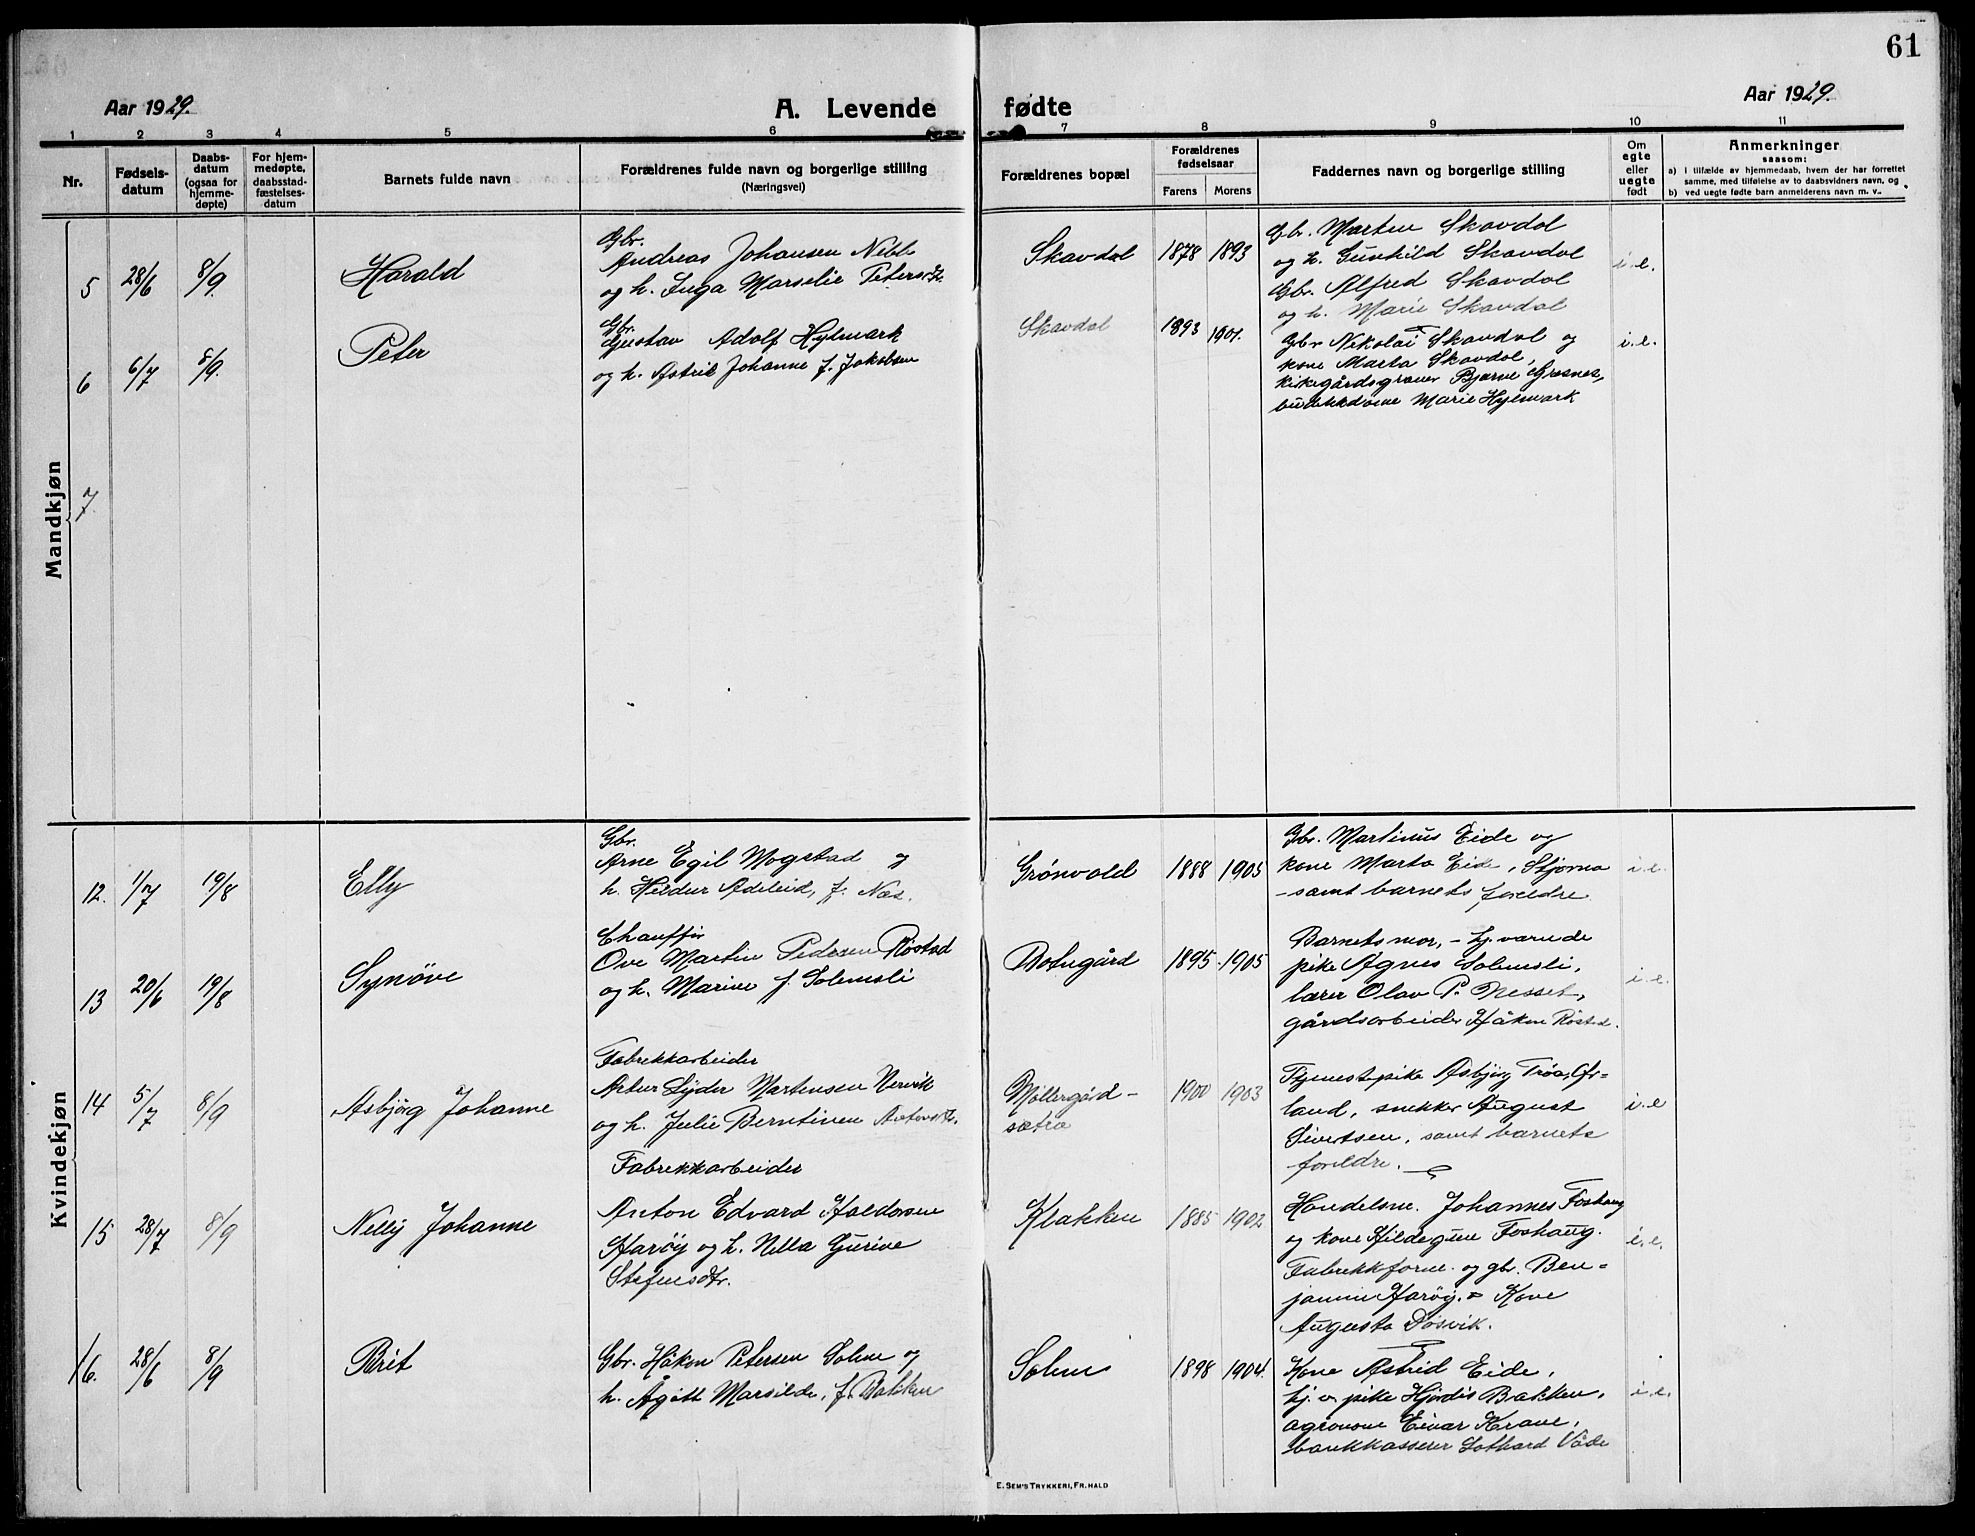 61
Aar 1929.
A. Levende fødte
Aar 1929.
1 2 3 4 5 6 7 8 9 10 11
Nr.
Fødsels-
datum
Daabs-
datum
(ogsaa for
hjemme-
døpte)
For hjem-
medøpte,
daabsstad-
fæstelses-
datum
Barnets fulde navn
Forældrenes fulde navn og borgerlige stilling
(Næringsvei)
Forældrenes bopæl
Forældrenes
fødselsaar
Farens Morens
Faddernes navn og borgerlige stilling
Om
egte
eller
uegte
født
Anmerkninger
saasom:
a) i tilfælde av hjemmedaab, hvem der har forrettet
samme, med tilføielse av to daabsvidners navn, og
b) ved uegte fødte barn anmelderens navn m. v..
Mandkjøn
5 28/6 8/9. Harald
Gbr.
Andreas Johansen
og h. Inga Marselie Petersdtr.
Skavdal 1878 1893
Gbr. Marten Skavdal
og h. Gunhild Skavdal
Gbr. Alfred Skavdal
og h. Marie Skavdal
i.e.
6 6/7 8/9. Peter
Gbr.
Gustav Adolf Hylmark
og h. Astrid Johanne f. Jakobsen
Skavdal 1893 1901.
Gbr Nikolai Skavdal og
kone Marta Skavdal,
kirkegårdsgraver Bjarne Grøsnes,
Marie Hylmark
i.e.
7
Kvindekjøn
12. 1/7 19/8 Elly
Gbr.
Arne Egil Mogstad og
h. Hildur Adeleid, f. Næs.
Grønvold 1888 1905
Gbr. Martinus Eide og
kone Marta Eide, Stjørna
- samt barnets foreldre
i.e.
13 20/6 19/8 Synöve
Chauffør
Ove Martin Pedersen Røstad
og h. Marine f. Solemsli
1895 1905
Barnets mor, - hj.værende
pike Agnes Solemsli,
lærer Olav P. Nesset,
gårdsarbeider Håkon Røstad.
i.e.
14 5/7 8/9 Asbjørg Johanne
Fabrekkarbeider
Artur Lyder Martensen Nervik
og h. Julie Berntinen Antonsdtr.
Möllergård-
sætra
1900 1903
Tjenestepike Asbjørg Trøa, Ør-
land, snekker August
Sivertsen, samt barnets
foreldre.
i.e
15 28/7 8/9 Nelly Johanne
Fabrekkarbeider
Anton Edvard Haldorsen
Harøy og h. Nella Gurine
Stefensdtr.
Klakken 1885 1902
Handelsm. Johannes Foshaug
og kone Hildegunn Foshaug.
Fabrekkform. og gbr. Ben-
jamin Harøy. Kone
Augusta Døsvik.
i.e.
16. 28/6 8/9 Brit
Gbr. Håkon Petersen Solem og
h. Ågott Marsilde, f. Bakken
Solem 1898 1904.
Kone Astrid Eide,
hj. v. pike Hjørdis Bakken,
agronom Einar Krane,
bankkasserer Lothard Våde
i.e.
E. Sem's Trykkeri, Fr.hald